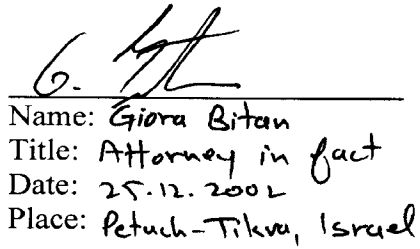 G.
Name: Giora Bitan
Title: Attorney in fact
Date: 25.12.2002
Place: Petuch-Tikva, Israel